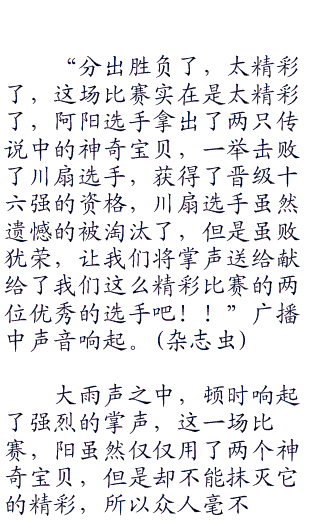 “分出胜负了，太精彩
了，这场比赛实在是太精彩
了，阿阳选手拿出了两只传
说中的神奇宝贝，一举击败
了川扇选手，获得了晋级十
六强的资格，川扇选手虽然
遗憾的被淘汰了，但是虽败
犹荣，让我们将掌声送给献
给了我们这么精彩比赛的两
位优秀的选手吧！！”广播
中声音响起。(杂志虫)
大雨声之中，顿时响起
了强烈的掌声，这一场比
赛，阳虽然仅仅用了两个神
奇宝贝，但是却不能抹灭它
的精彩，所以众人毫不